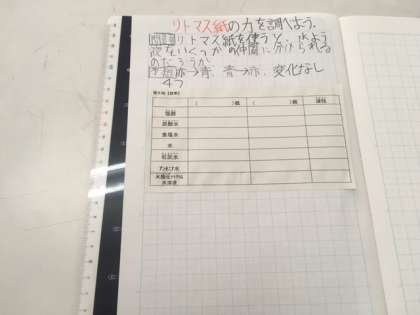 リトマス紙の力を調べよう。
問題 リトマス紙を使うと、水よう
液をいくつかの仲間に分けられる
のだろうか
予想 赤→青、青→赤、変化なし
4つ
(　　　)紙 (　　　)紙 液性
塩酸
炭酸水
食塩水
水
石灰水
アンモニア水
水酸化ナトリウム
水溶液